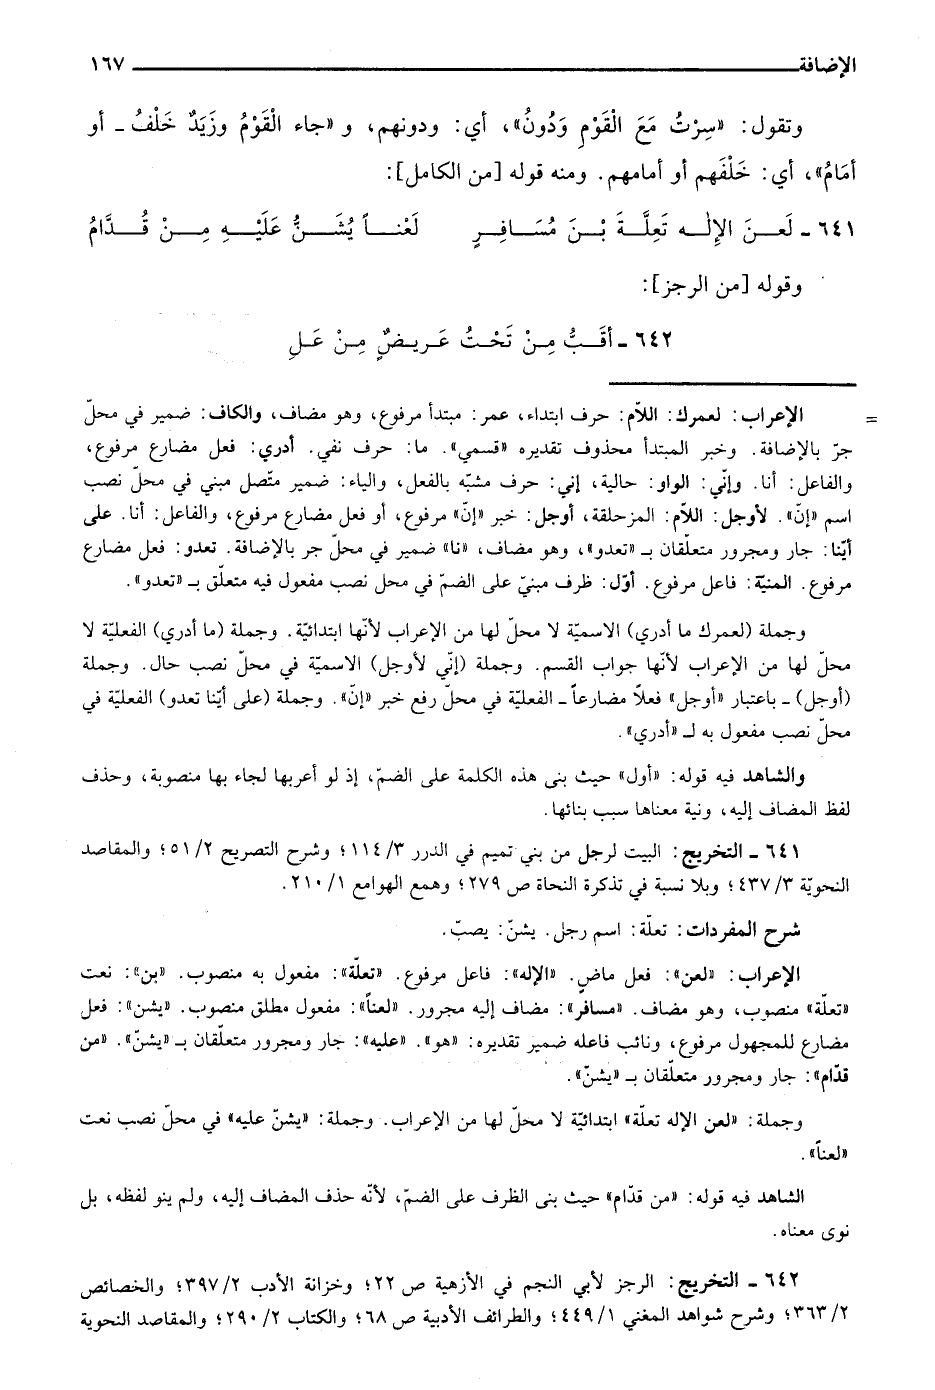 الإضافة ١٦٧
وتقول: «سِرْتُ مَعَ الْقَوْمِ وَدُونُ»، أي: ودونهم، و «جاء الْقَوْمُ وزَيَدٌ خَلْفُ ـ أو
أمَامُ»، أي: خَلْفَهم أو أمامهم. ومنه قوله [من الكامل]:
٦٤١ ـ لَعـنَ الإِلٰـه تَعِلَّـةَ بْـنَ مُسَـافِـرٍ لَعْنـاً يُشَـنُّ عَلَيْـهِ مِـنْ قُـدَّامُ
وقوله [من الرجز]:
٦٤٢ ـ أقَـبُّ مِـنْ تَحْـتُ عَـرِيـضٌ مِـنْ عَـلِ
= الإعراب: لعمرك: اللاّم: حرف ابتداء، عمر: مبتدأ مرفوع، وهو مضاف، والكاف: ضمير في محلّ
جرّ بالإضافة. وخبر المبتدأ محذوف تقديره «قسمي». ما: حرف نفي. أدري: فعل مضارع مرفوع،
والفاعل: أنا. وإنّي: الواو: حالية، إني: حرف مشبّه بالفعل، والياء: ضمير متّصل مبني في محلّ نصب
اسم «إنّ». لأوجل: اللاّم: المزحلقة، أوجل: خبر «إنّ» مرفوع، أو فعل مضارع مرفوع، والفاعل: أنا. على
أيّنا: جار ومجرور متعلّقان بـ «تعدو»، وهو مضاف، «نا» ضمير في محلّ جر بالإضافة. تعدو: فعل مضارع
مرفوع. المنيّة: فاعل مرفوع. أوّل: ظرف مبنيّ على الضمّ في محل نصب مفعول فيه متعلّق بـ «تعدو».
وجملة (لعمرك ما أدري) الاسميّة لا محلّ لها من الإعراب لأنّها ابتدائيّة. وجملة (ما أدري) الفعليّة لا
محلّ لها من الإعراب لأنّها جواب القسم. وجملة (إنّي لأوجل) الاسميّة في محلّ نصب حال. وجملة
(أوجل) ـ باعتبار «أوجل» فعلاً مضارعاً ـ الفعليّة في محلّ رفع خبر «إنّ». وجملة (على أيّنا تعدو) الفعليّة في
محلّ نصب مفعول به لـ «أدري».
والشاهد فيه قوله: «أول» حيث بنى هذه الكلمة على الضمّ، إذ لو أعربها لجاء بها منصوبة، وحذف
لفظ المضاف إليه، ونية معناها سبب بنائها.
٦٤١ ـ التخريج: البيت لرجل من بني تميم في الدرر ٣/ ١١٤؛ وشرح التصريح ٢/ ٥١؛ والمقاصد
النحويّة ٣/ ٤٣٧؛ وبلا نسبة في تذكرة النحاة ص ٢٧٩؛ وهمع الهوامع ١/ ٢١٠.
شرح المفردات: تعلّة: اسم رجل. يشنّ: يصبّ.
الإعراب: «لعن»: فعل ماضٍ. «الإله»: فاعل مرفوع. «تعلّة»: مفعول به منصوب. «بن»: نعت
«تعلّة» منصوب، وهو مضاف. «مسافر»: مضاف إليه مجرور. «لعناً»: مفعول مطلق منصوب. «يشن»: فعل
مضارع للمجهول مرفوع، ونائب فاعله ضمير تقديره: «هو». «عليه»: جار ومجرور متعلّقان بـ «يشنّ». «من
قدّام»: جار ومجرور متعلّقان بـ «يشنّ».
وجملة: «لعن الإله تعلّة» ابتدائيّة لا محلّ لها من الإعراب. وجملة: «يشنّ عليه» في محلّ نصب نعت
«لعناً».
الشاهد فيه قوله: «من قدّام» حيث بنى الظرف على الضمّ، لأنّه حذف المضاف إليه، ولم ينو لفظه، بل
نوى معناه.
٦٤٢ ـ التخريج: الرجز لأبي النجم في الأزهية ص ٢٢؛ وخزانة الأدب ٢/ ٣٩٧؛ والخصائص
٢/ ٣٦٣؛ وشرح شواهد المغني ١/ ٤٤٩؛ والطرائف الأدبية ص ٦٨؛ والكتاب ٢/ ٢٩٠؛ والمقاصد النحوية